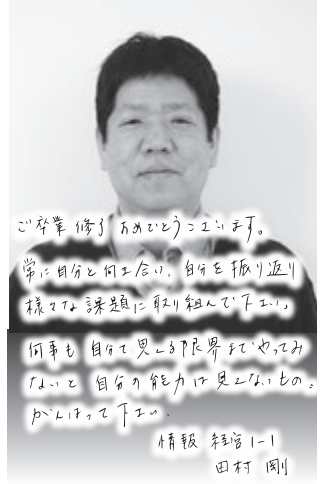 ご卒業 修了 おめでとうございます。
常に自分と向き合い、自分を振り返り
様々な課題に取り組んで下さい。
何事も自分で見える限界までやってみ
ないと自分の能力は見えないもの。
がんばって下さい。
情報 経営1-1
田村 剛